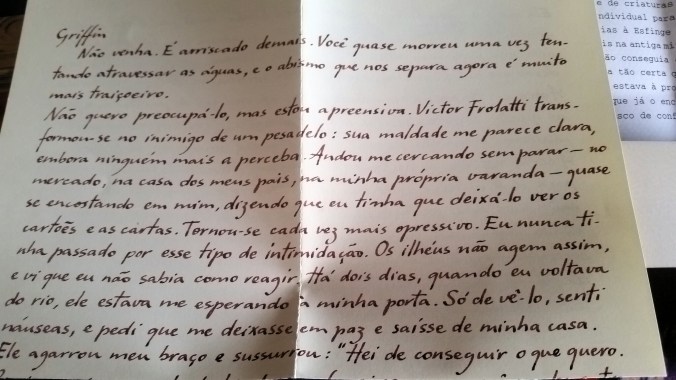 Griffin
Não venha. É arriscado demais. Você quase morreu uma vez ten-
tando atravessar as águas, e o abismo que nos separa agora é muito
mais traiçoeiro.
Não quero preocupá-lo, mas estou apreensiva. Victor Frolatti trans-
formou-se no inimigo de um pesadelo: sua maldade me parece clara,
embora ninguém mais a perceba. Andou me cercando sem parar — no
mercado, na casa dos meus pais, na minha própria varanda — quase
se encostando em mim, dizendo que eu tinha que deixá-lo ver os
cartões e as cartas. Tornou-se cada vez mais opressivo. Eu nunca ti-
nha passado por esse tipo de intimidação. Os ilhéus não agem assim,
e vi que eu não sabia como reagir. Há dois dias, quando eu voltava
do rio, ele estava me esperando à minha porta. Só de vê-lo, senti
náuseas, e pedi que me deixasse em paz e saísse de minha casa.
Ele agarrou meu braço e sussurrou: "Hei de conseguir o que quero.
e de criaturas
ndividual para
ias à Esfinge
is na antiga mi
ão conseguia
a tão certa q
estava à pro
que já o enc
sco de conf